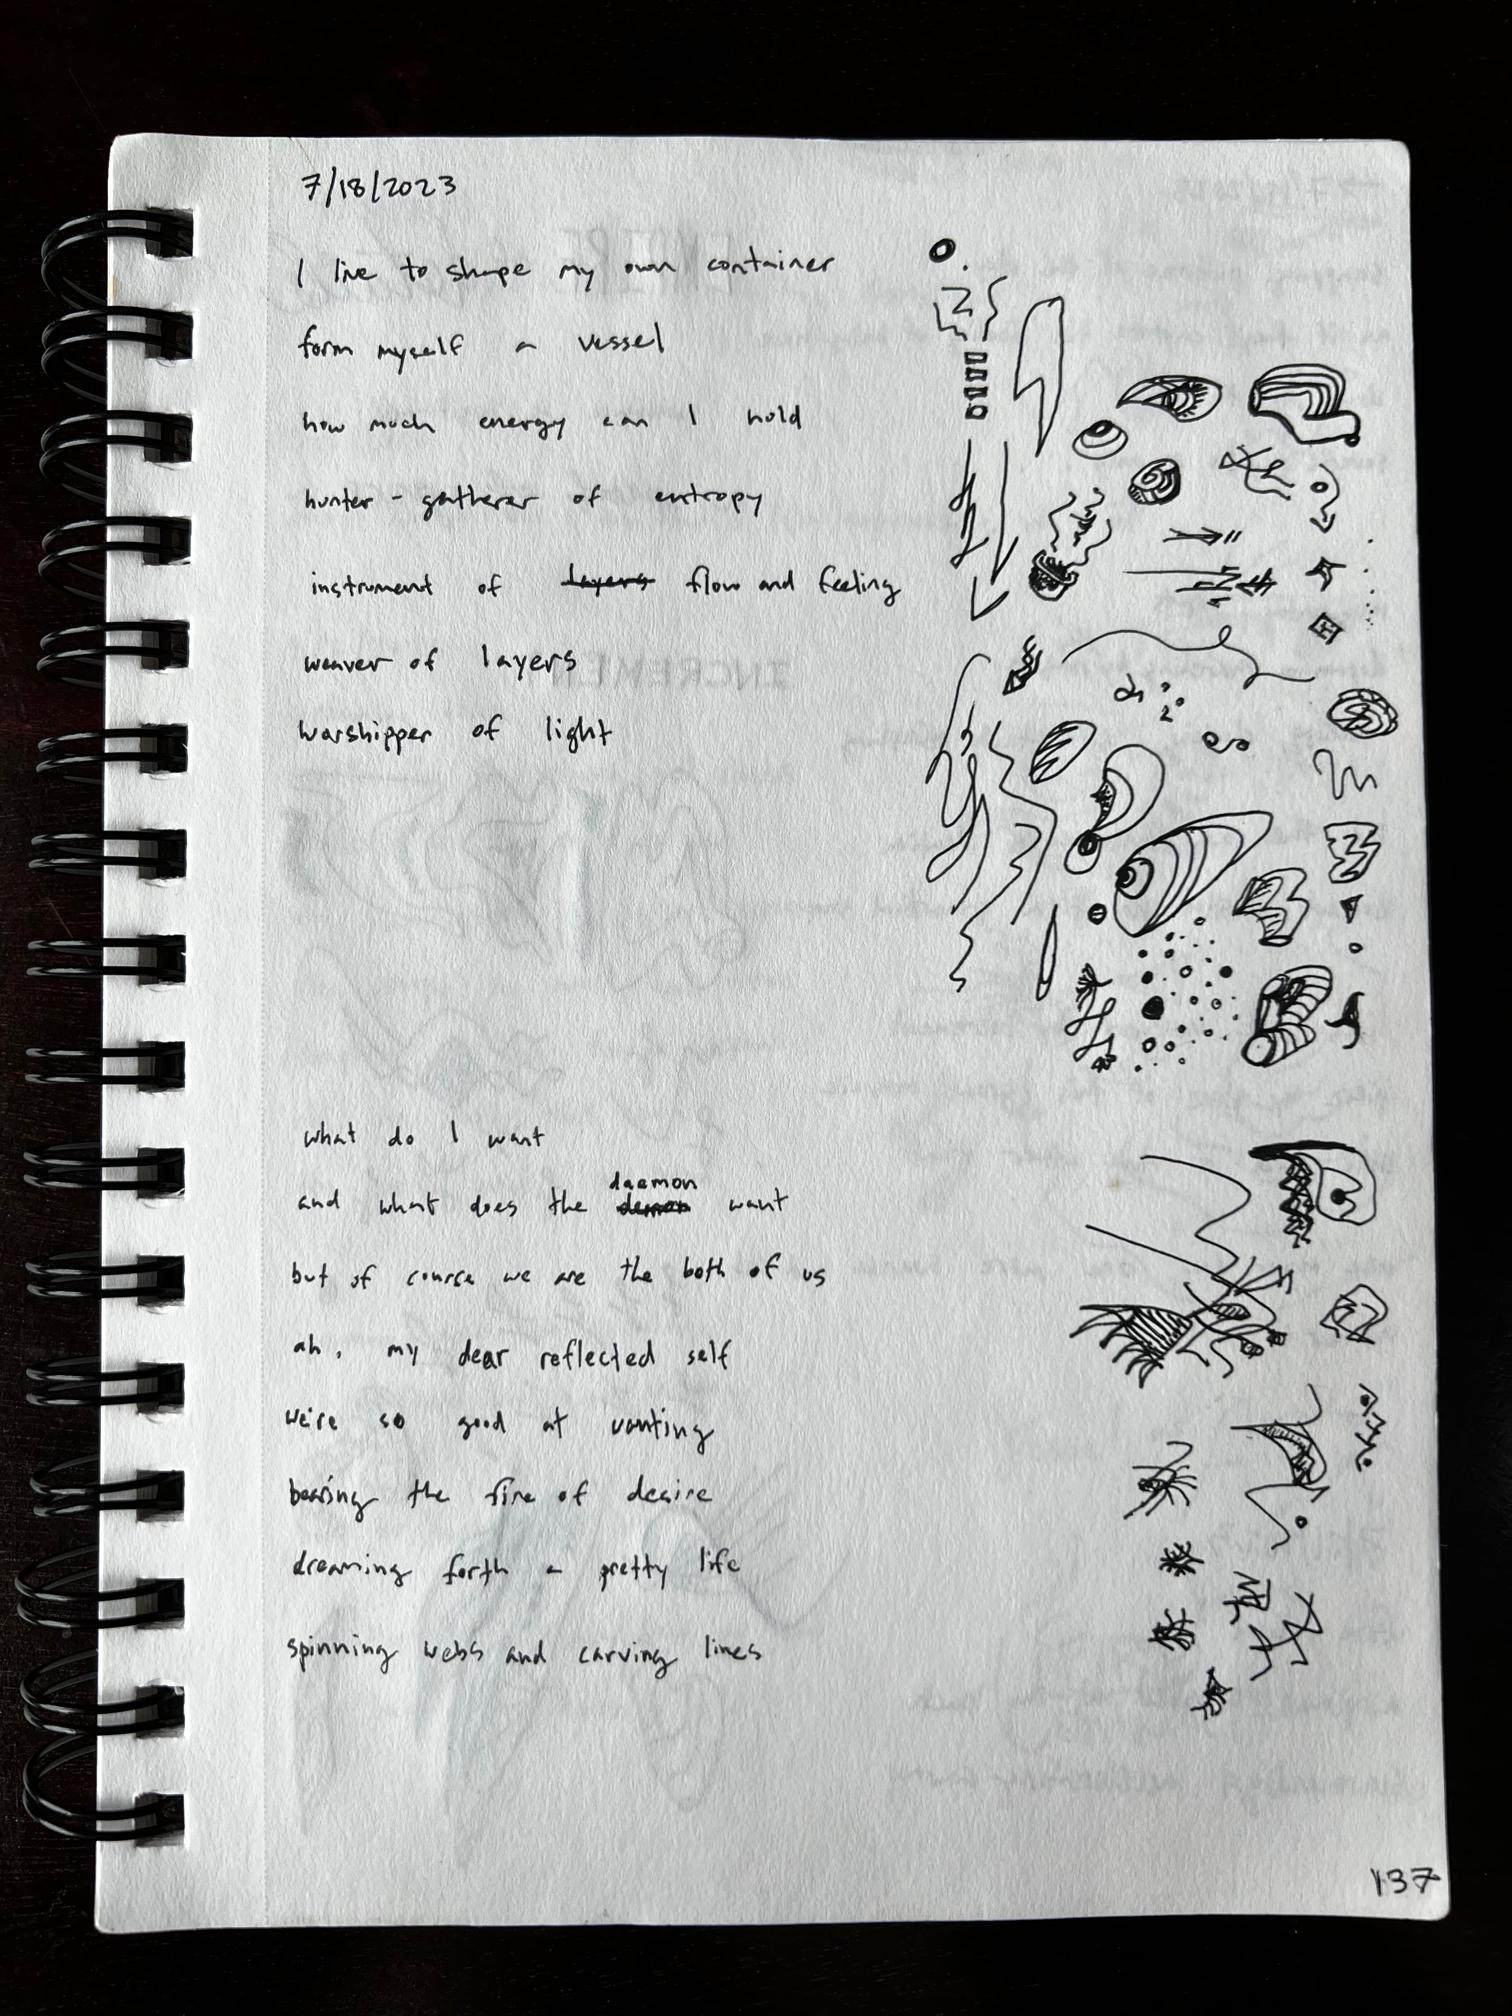 7/18/2023
I live to shape my own container
form myself a vessel
how much energy can I hold
hunter-gatherer of entropy
instrument of layers flow and feeling
weaver of layers
worshipper of light
what do I want
and what does the demon daemon want
but of course we are the both of us
ah, my dear reflected self
we're so good at wanting
bearing the fire of desire
dreaming forth a pretty life
spinning webs and carving lines
137